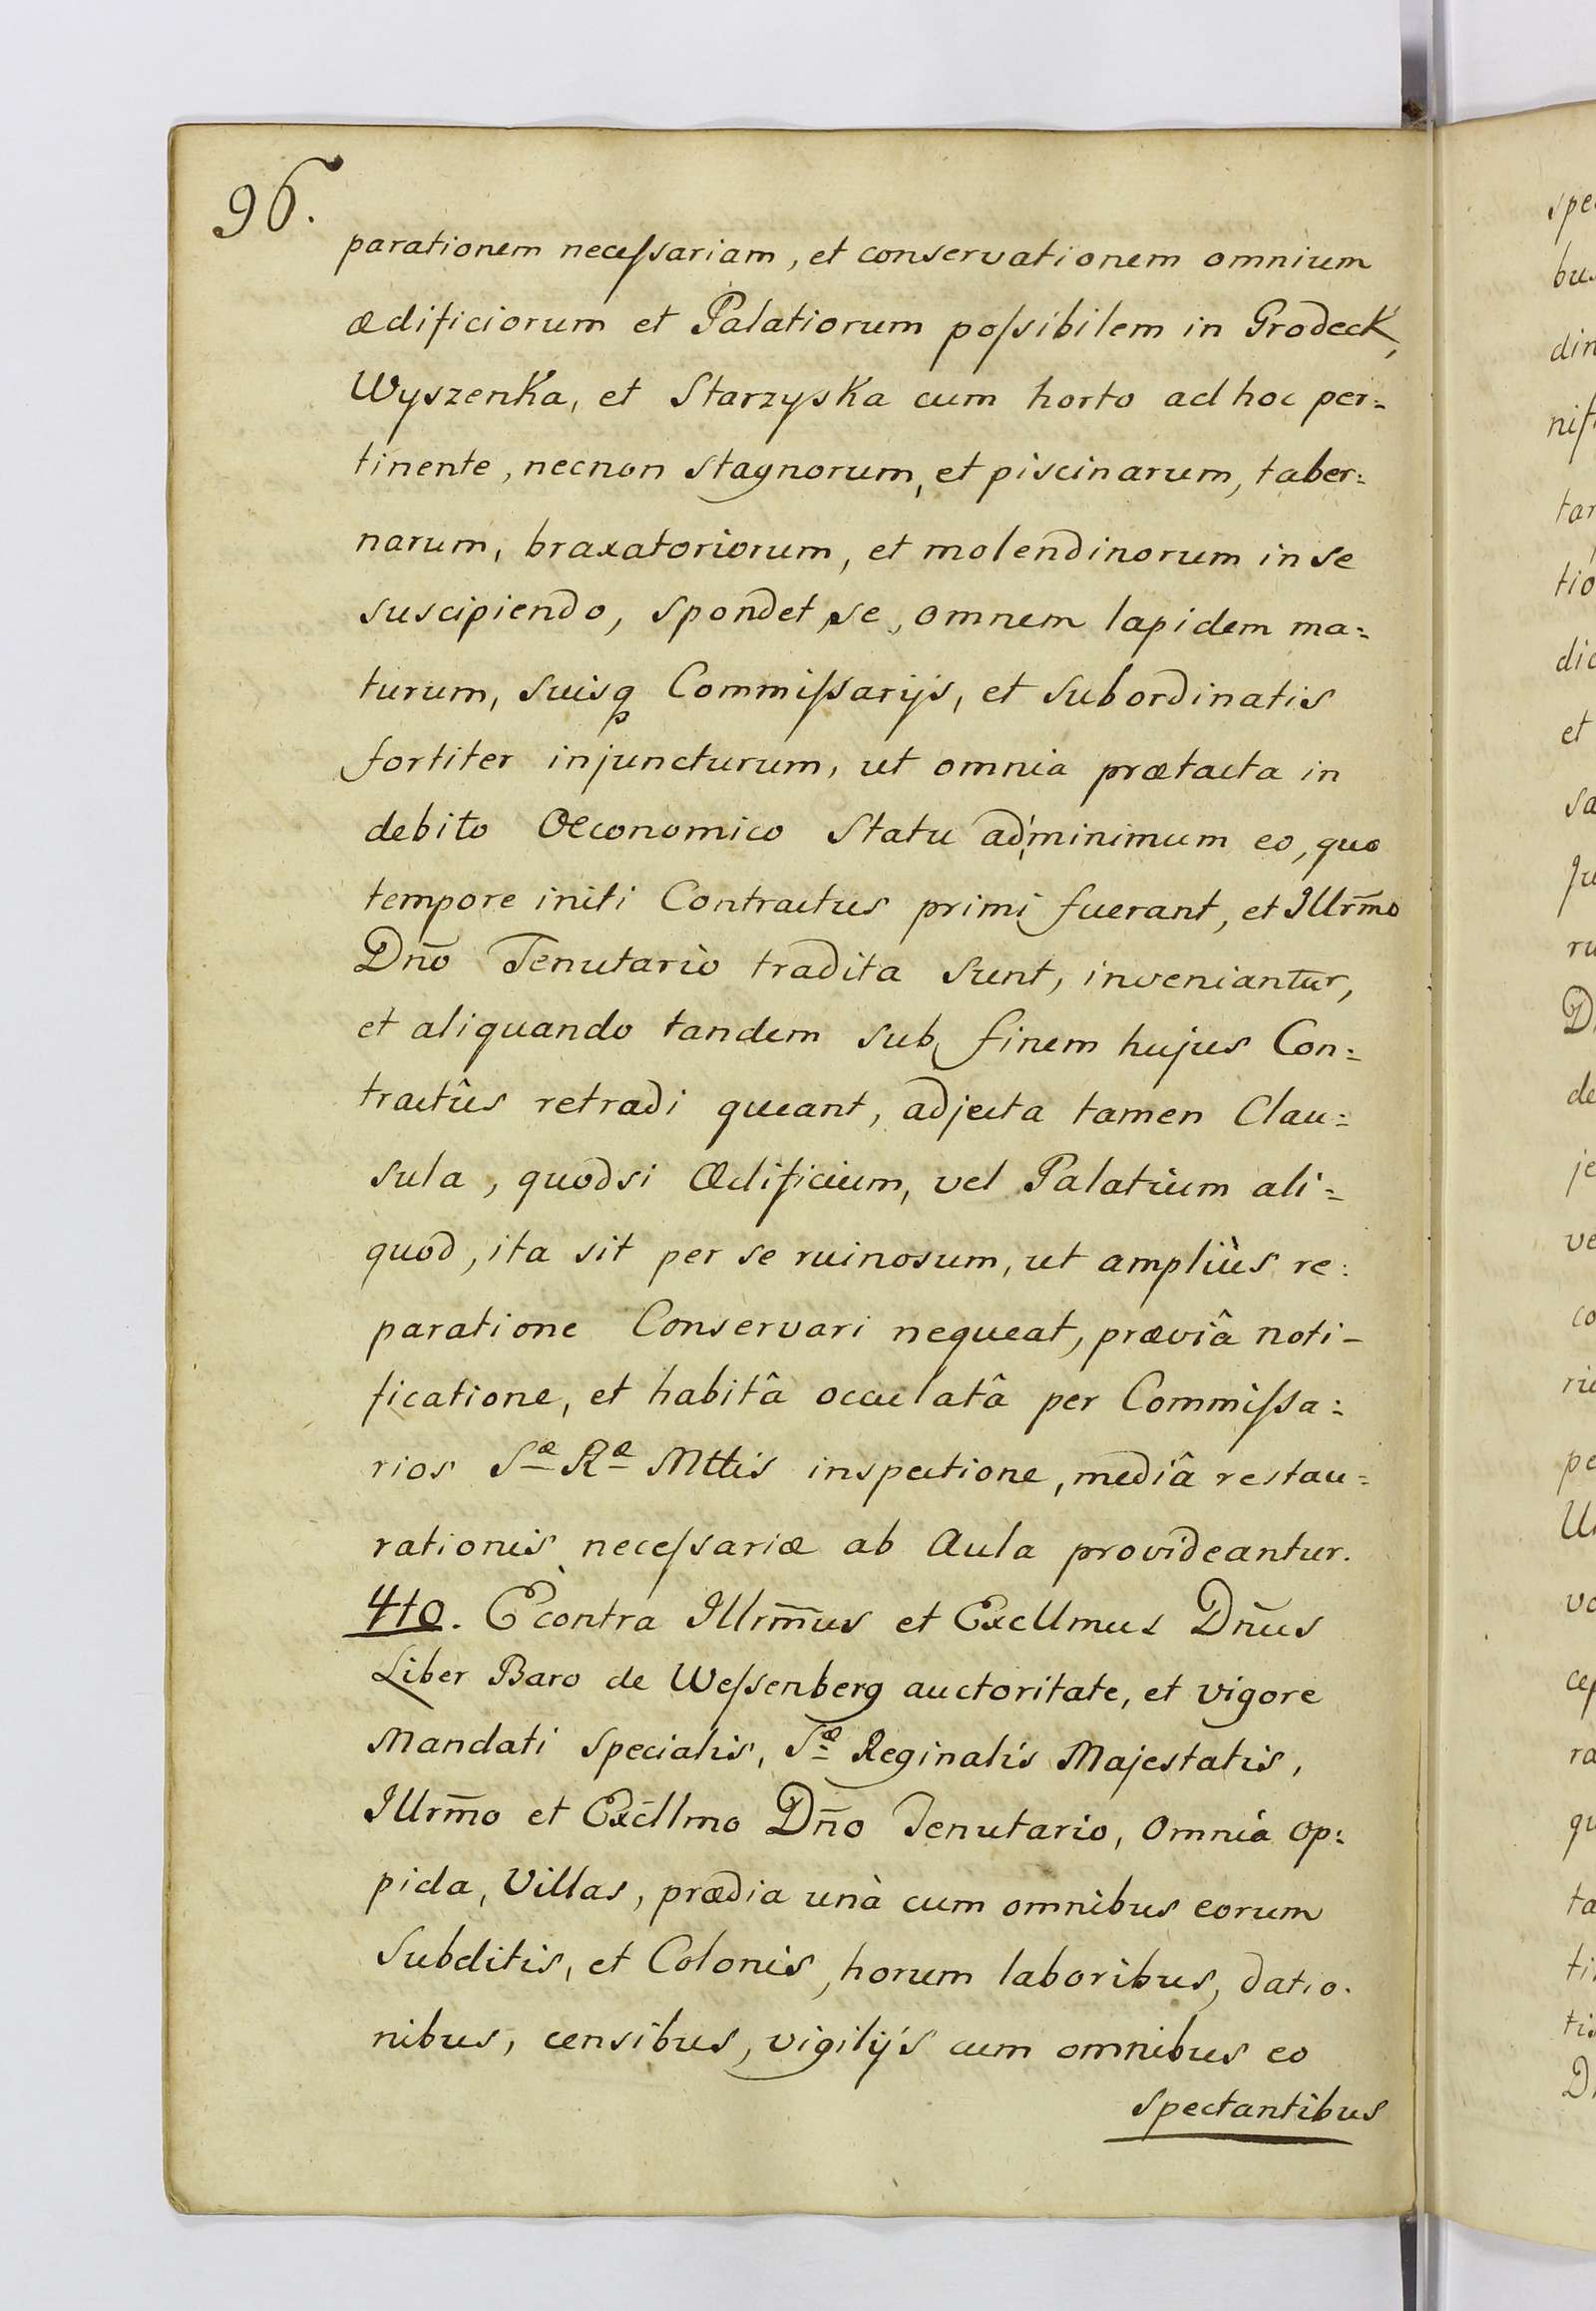 96.
parationem neceſsariam, et conservationem omnium
ædificiorum et Palatiorum poſsibilem in Grodeck,
Wyszenka, et Starzyska cum horto ad hoc per=
tinente, necnon stagnorum, et piscinarum, taber=
narum, braxatoriorum, et molendinorum in se
suscipiendo, spondet, se, omnem lapidem mo=
turum, suisq Commiſsarijs, et subordinatis
fortiter injuncturum, ut omnia prætacta in
debito Oeconomico statu ad minimum eo, quo
tempore initi Contractus primi fuerant, et Illrm̄o
Dn̄o Tenutario tradita sunt, inveniantur,
et aliquando tandem sub finem hujus Con=
tractûs retradi queant, adjecta tamen Clau=
sula, quodsi Ædificium, vel Palatium ali=
quod, ita sit per se ruinosum, ut ampliùs re=
paratione Conservari nequeat, præviâ noti-
ficatione, et habitâ occulatâ per Commiſsa=
rios Sæ Ræ Mttis inspectione, mediâ restau=
rationis necessariæ ab Aula provideantur.
4to. Econtra Illrm̄us et Excllmus Dn̄us
Liber Baro de Weſsenberg auctoritate, et vigore
Mandati specialis, Sæ Reginalis Majestatis,
Illrm̄o et Excllmo Dn̄o Tenutario, omnia op=
pida, Villas, prædia unà cum omnibus eorum
subditis, et Colonis, horum laboribus, datio=
nibus, censibus, vigilijs cum omnibus eo
spectantibus